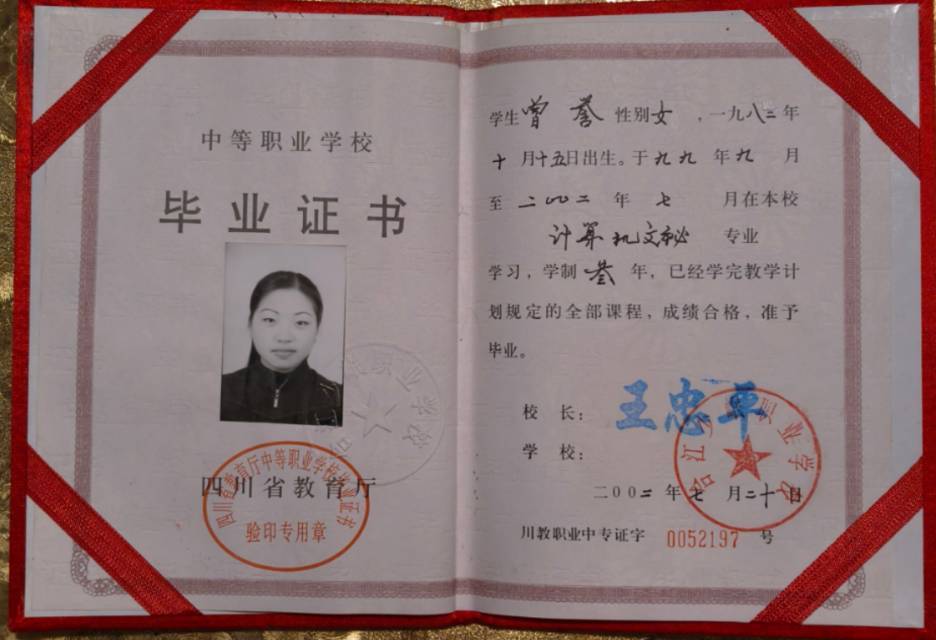 中等职业学校
毕业证书
四川省教育厅
四川省教育厅中等职业学校毕业证书
验印专用章
学生曾誉性别女，一九八二年
十月十五日出生。于九九年九月
至二〇〇二年七月在本校
计算机文秘专业
学习，学制叁年，已经学完教学计
划规定的全部课程，成绩合格，准予
毕业。
校长：王忠平
学校：
二〇〇二年七月二十日
川教职业中专证字 0052197 号